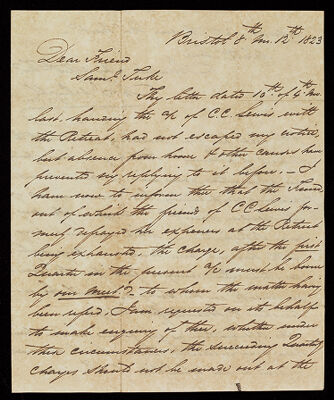 Bristol 8th Mo. 12th 1823
Dear Friend
Saml. Tuke
Thy letter dated 10th. of 6th Mo
last handing the a/c of C.C. Lewis with
the Retreat, had not escaped my notice,
but absence from home & other causes have
prevented my replying to it before, — I
have now to inform thee that the
out of which the friend of C C Lewis for-
merly defrayed her expenses at the Retreat
being exhausted, the charge, after the first
Quarter in the present a/c must be borne
by our Mo. Meetg. to whom the matter having
been referd, I am requested on its behalf
to make enquiry of thee, whether under
these circumstances, the succeeding Quarterly
charges should not be made out at the